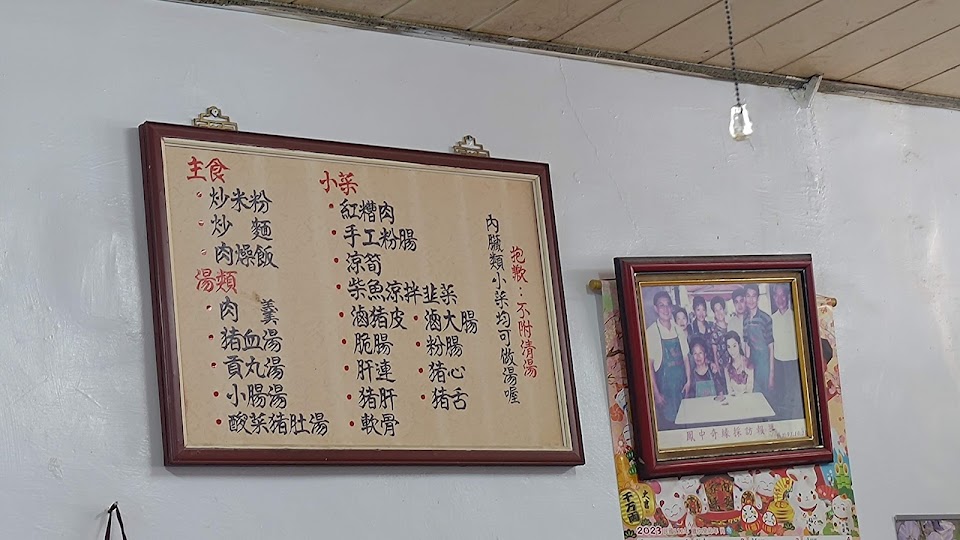 主食
炒米粉
炒 麵
肉燥飯
湯類
肉 羹
猪血湯
貢丸湯
小腸湯
酸菜猪肚湯
小菜
紅糟肉
手工粉腸
涼筍
柴魚涼拌韭菜
滷猪皮
脆腸
肝連
猪肝
軟骨
滷大腸
粉腸
猪心
猪舌
內臟類小菜均可做湯喔
抱歉:不附清湯
鳳中奇緣採訪
千万両
2023